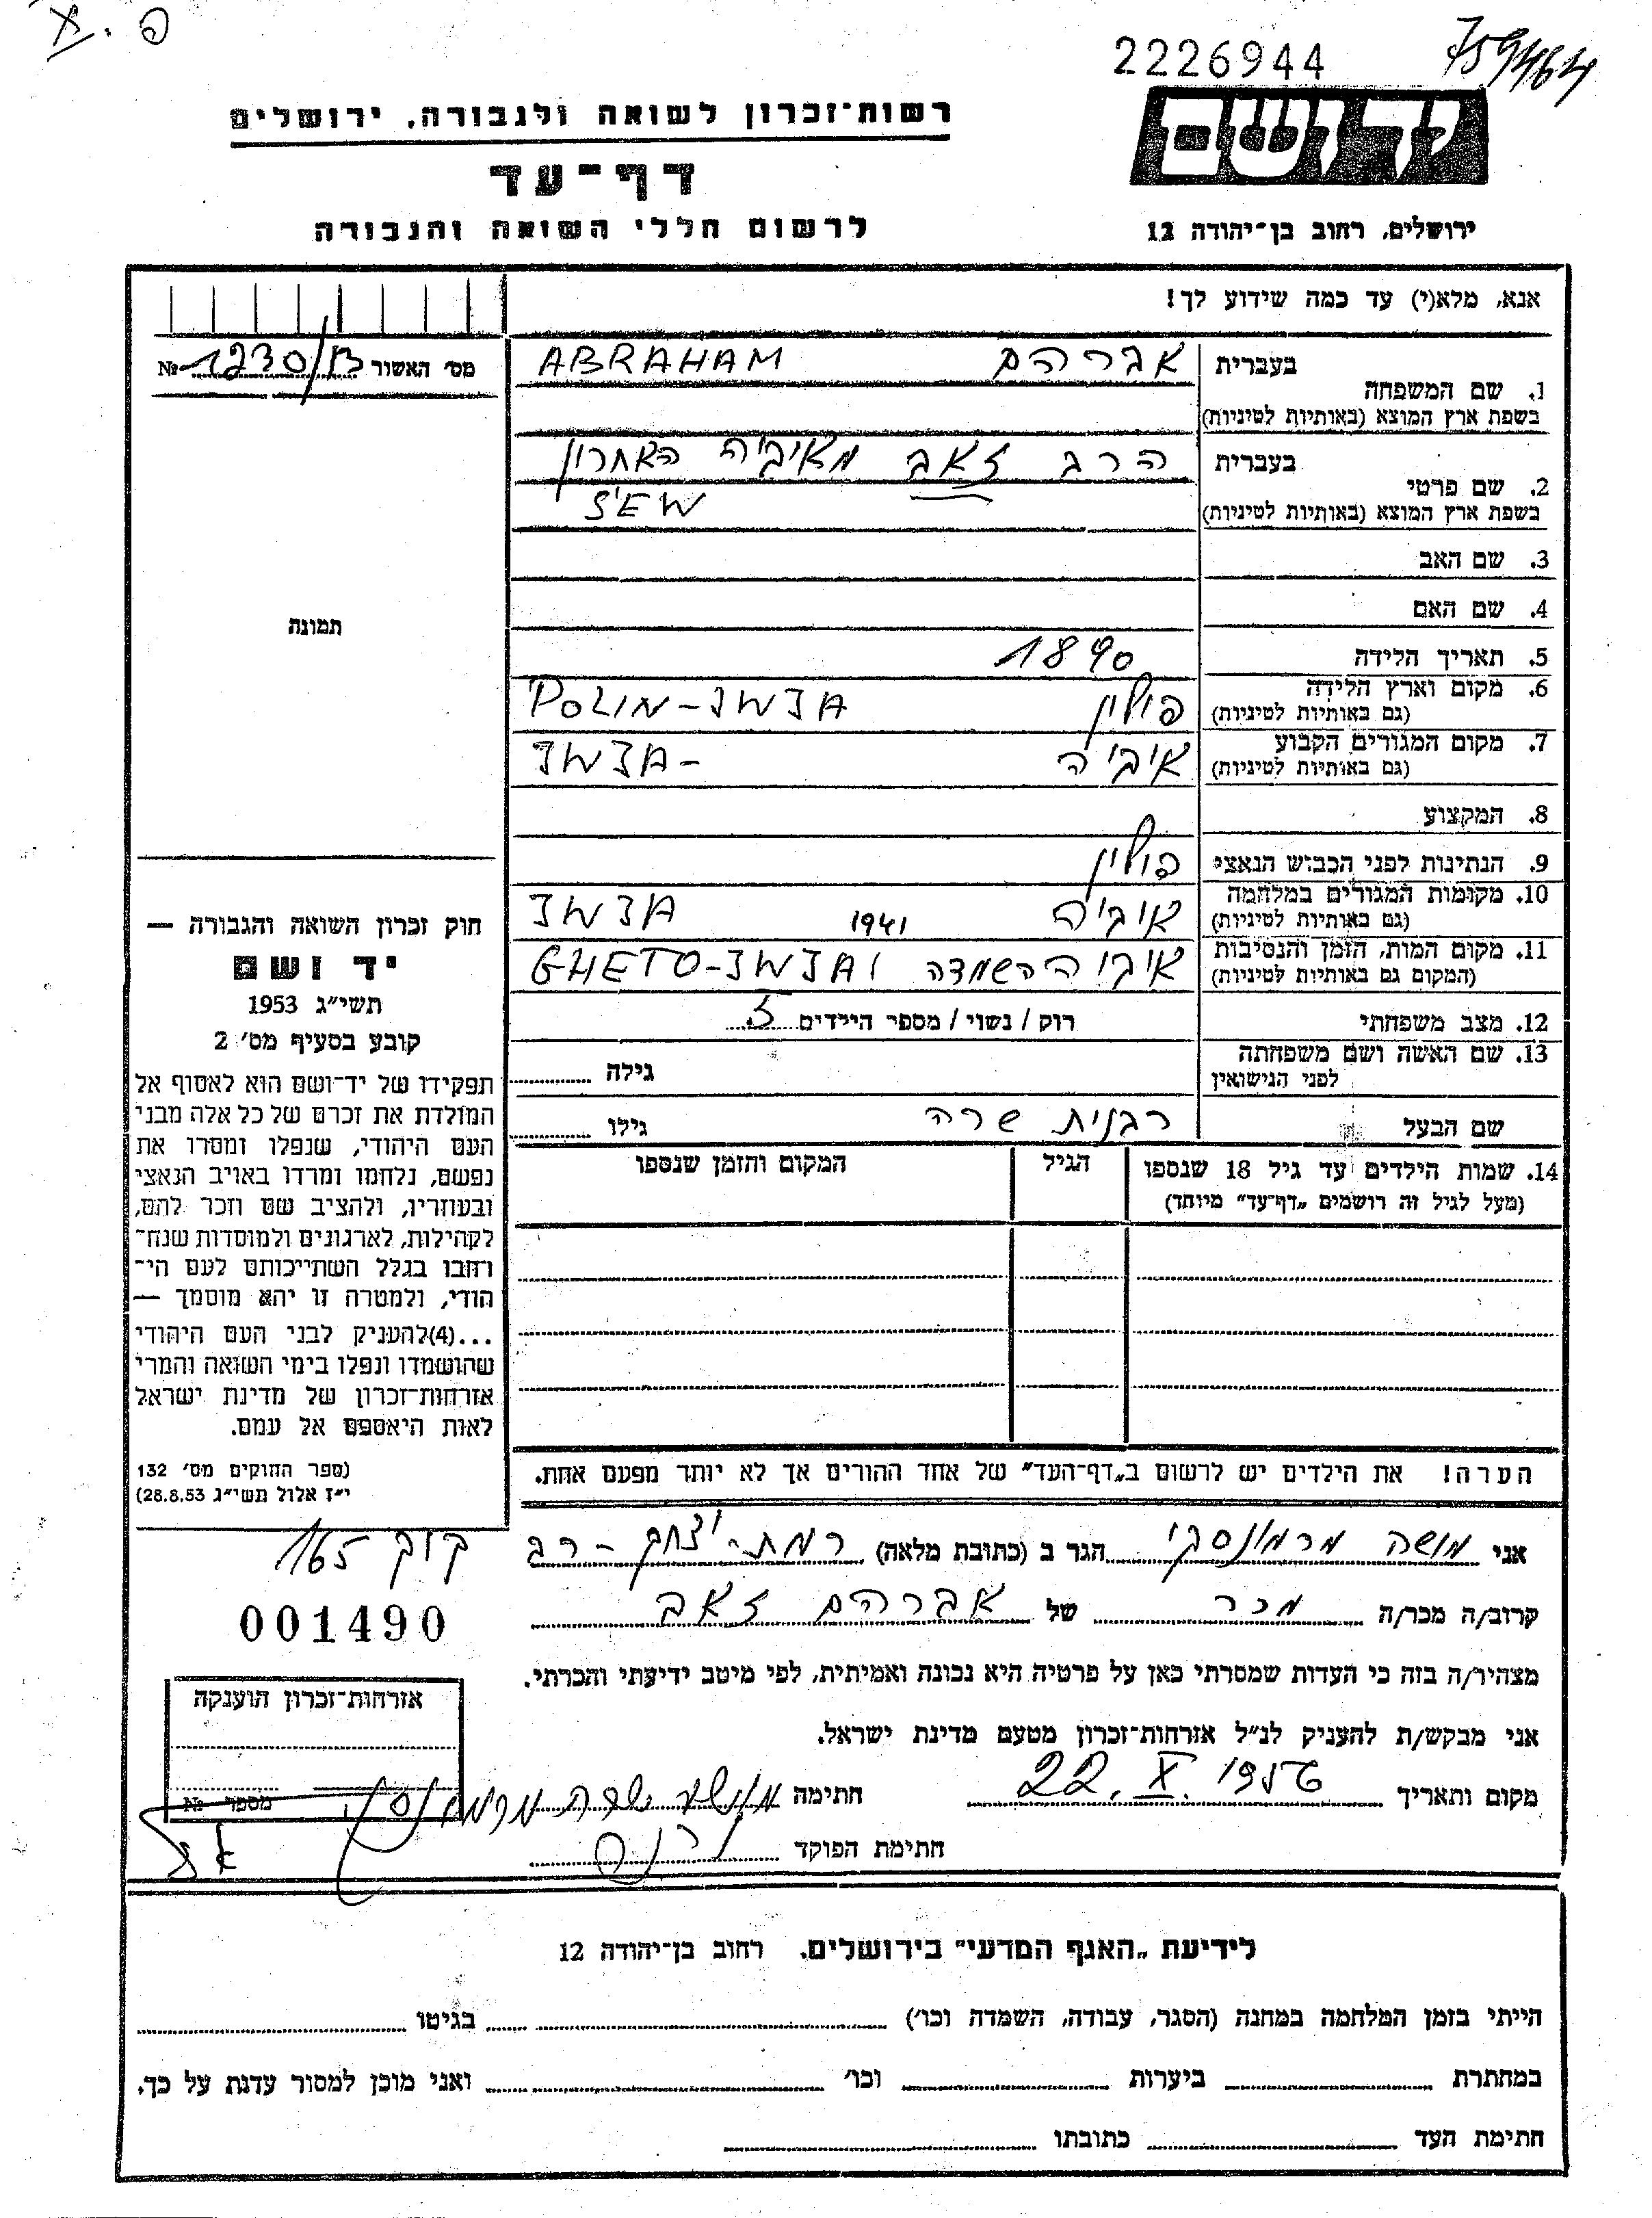 פ. צ
2226944
759464
יד ושם
ירושלים, רחוב בן־יהודה 12
רשות־זכרון לשואה ולגבורה, ירושלים
דף־עד
לרשום חללי השואה והגבורה
אנא, מלא(י) עד כמה שידוע לך!
מס׳ האשור № 1230/13
תמונה
בעברית אברהם ABRAHAM
1. שם המשפחה
בשפת ארץ המוצא (באותיות לטיניות)
בעברית הרב זאב מאיביה האחרון
2. שם פרטי
בשפת ארץ המוצא (באותיות לטיניות) S'EW
3. שם האב
4. שם האם
5. תאריך הלידה 1890
6. מקום וארץ הלידה פולין POLIN-IWJA
(גם באותיות לטיניות)
7. מקום המגורים הקבוע איביה IWJA-
(גם באותיות לטיניות)
8. המקצוע
9. הנתינות לפני הכבוש הנאצי פולין
10. מקומות המגורים במלחמה איביה 1941 IWJA
(גם באותיות לטיניות)
11. מקום המות, הזמן והנסיבות איביה השמדה GHETO-IWJA
(המקום גם באותיות לטיניות)
12. מצב משפחתי רוק / נשוי / מספר הילדים 5
13. שם האשה ושם משפחתה גילה
לפני הנישואין
שם הבעל רבנית שרה גילו
14. שמות הילדים עד גיל 18 שנספו הגיל המקום והזמן שנספו
(מעל לגיל זה רושמים „דף־עד״ מיוחד)
הערה! את הילדים יש לרשום ב„דף־העד״ של אחד ההורים אך לא יותר מפעם אחת.
חוק זכרון השואה והגבורה —
יד ושם
תשי״ג 1953
קובע בסעיף מס׳ 2
תפקידו של יד־ושם הוא לאסוף אל
המולדת את זכרם של כל אלה מבני
העם היהודי, שנפלו ומסרו את
נפשם, נלחמו ומרדו באויב הנאצי
ובעוזריו, ולהציב שם וזכר להם,
לקהילות, לארגונים ולמוסדות שנח־
רבו בגלל השתייכותם לעם הי־
הודי, ולמטרה זו יהא מוסמך —
...(4)להעניק לבני העם היהודי
שהושמדו ונפלו בימי השואה והמרי
אזרחות־זכרון של מדינת ישראל
לאות היאספם אל עמם.
(ספר החוקים מס׳ 132
י״ז אלול תשי״ג 28.8.53)
אני מושה מרמונסקי הגר ב (כתובת מלאה) רמת-יצחק-רג
קוק 165
קרוב/ה מכר/ה מכר של אברהם זאב
001490
מצהיר/ה בזה כי העדות שמסרתי כאן על פרטיה היא נכונה ואמיתית, לפי מיטב ידיעתי והכרתי.
אני מבקש/ת להעניק לנ״ל אזרחות־זכרון מטעם מדינת ישראל.
אזרחות־זכרון הוענקה
מספר №
מקום ותאריך 22.X.1956 חתימה
חתימת הפוקד
לידיעת „האגף המדעי״ בירושלים, רחוב בן־יהודה 12
הייתי בזמן המלחמה במחנה (הסגר, עבודה, השמדה וכו׳) בגיטו
במחתרת ביערות וכו׳ ואני מוכן למסור עדות על כך.
חתימת העד כתובתו